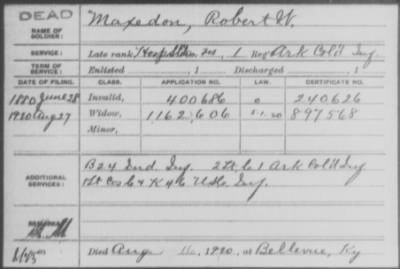 DEAD
NAME OF SOLDIER: Maxedon, Robert W.
SERVICE: Late rank, Hosp. Stew. 1 Reg't Ark Col'd Inf.
TERM OF SERVICE: Enlisted , 1 Discharged , 1
DATE OF FILING. CLASS. APPLICATION NO. LAW. CERTIFICATE NO.
1880 June 28 Invalid, 400686 240626
1920 Aug 27 Widow, 1162606 897568
Minor,
ADDITIONAL SERVICES: B 24 Ind. Inf. 2 Lt, C 1 Ark Col'd Inf
1 Lt Cos G & K 46 U.S.C. Inf.
REMARKS:
Died Aug 1920, at Bellevue, Ky